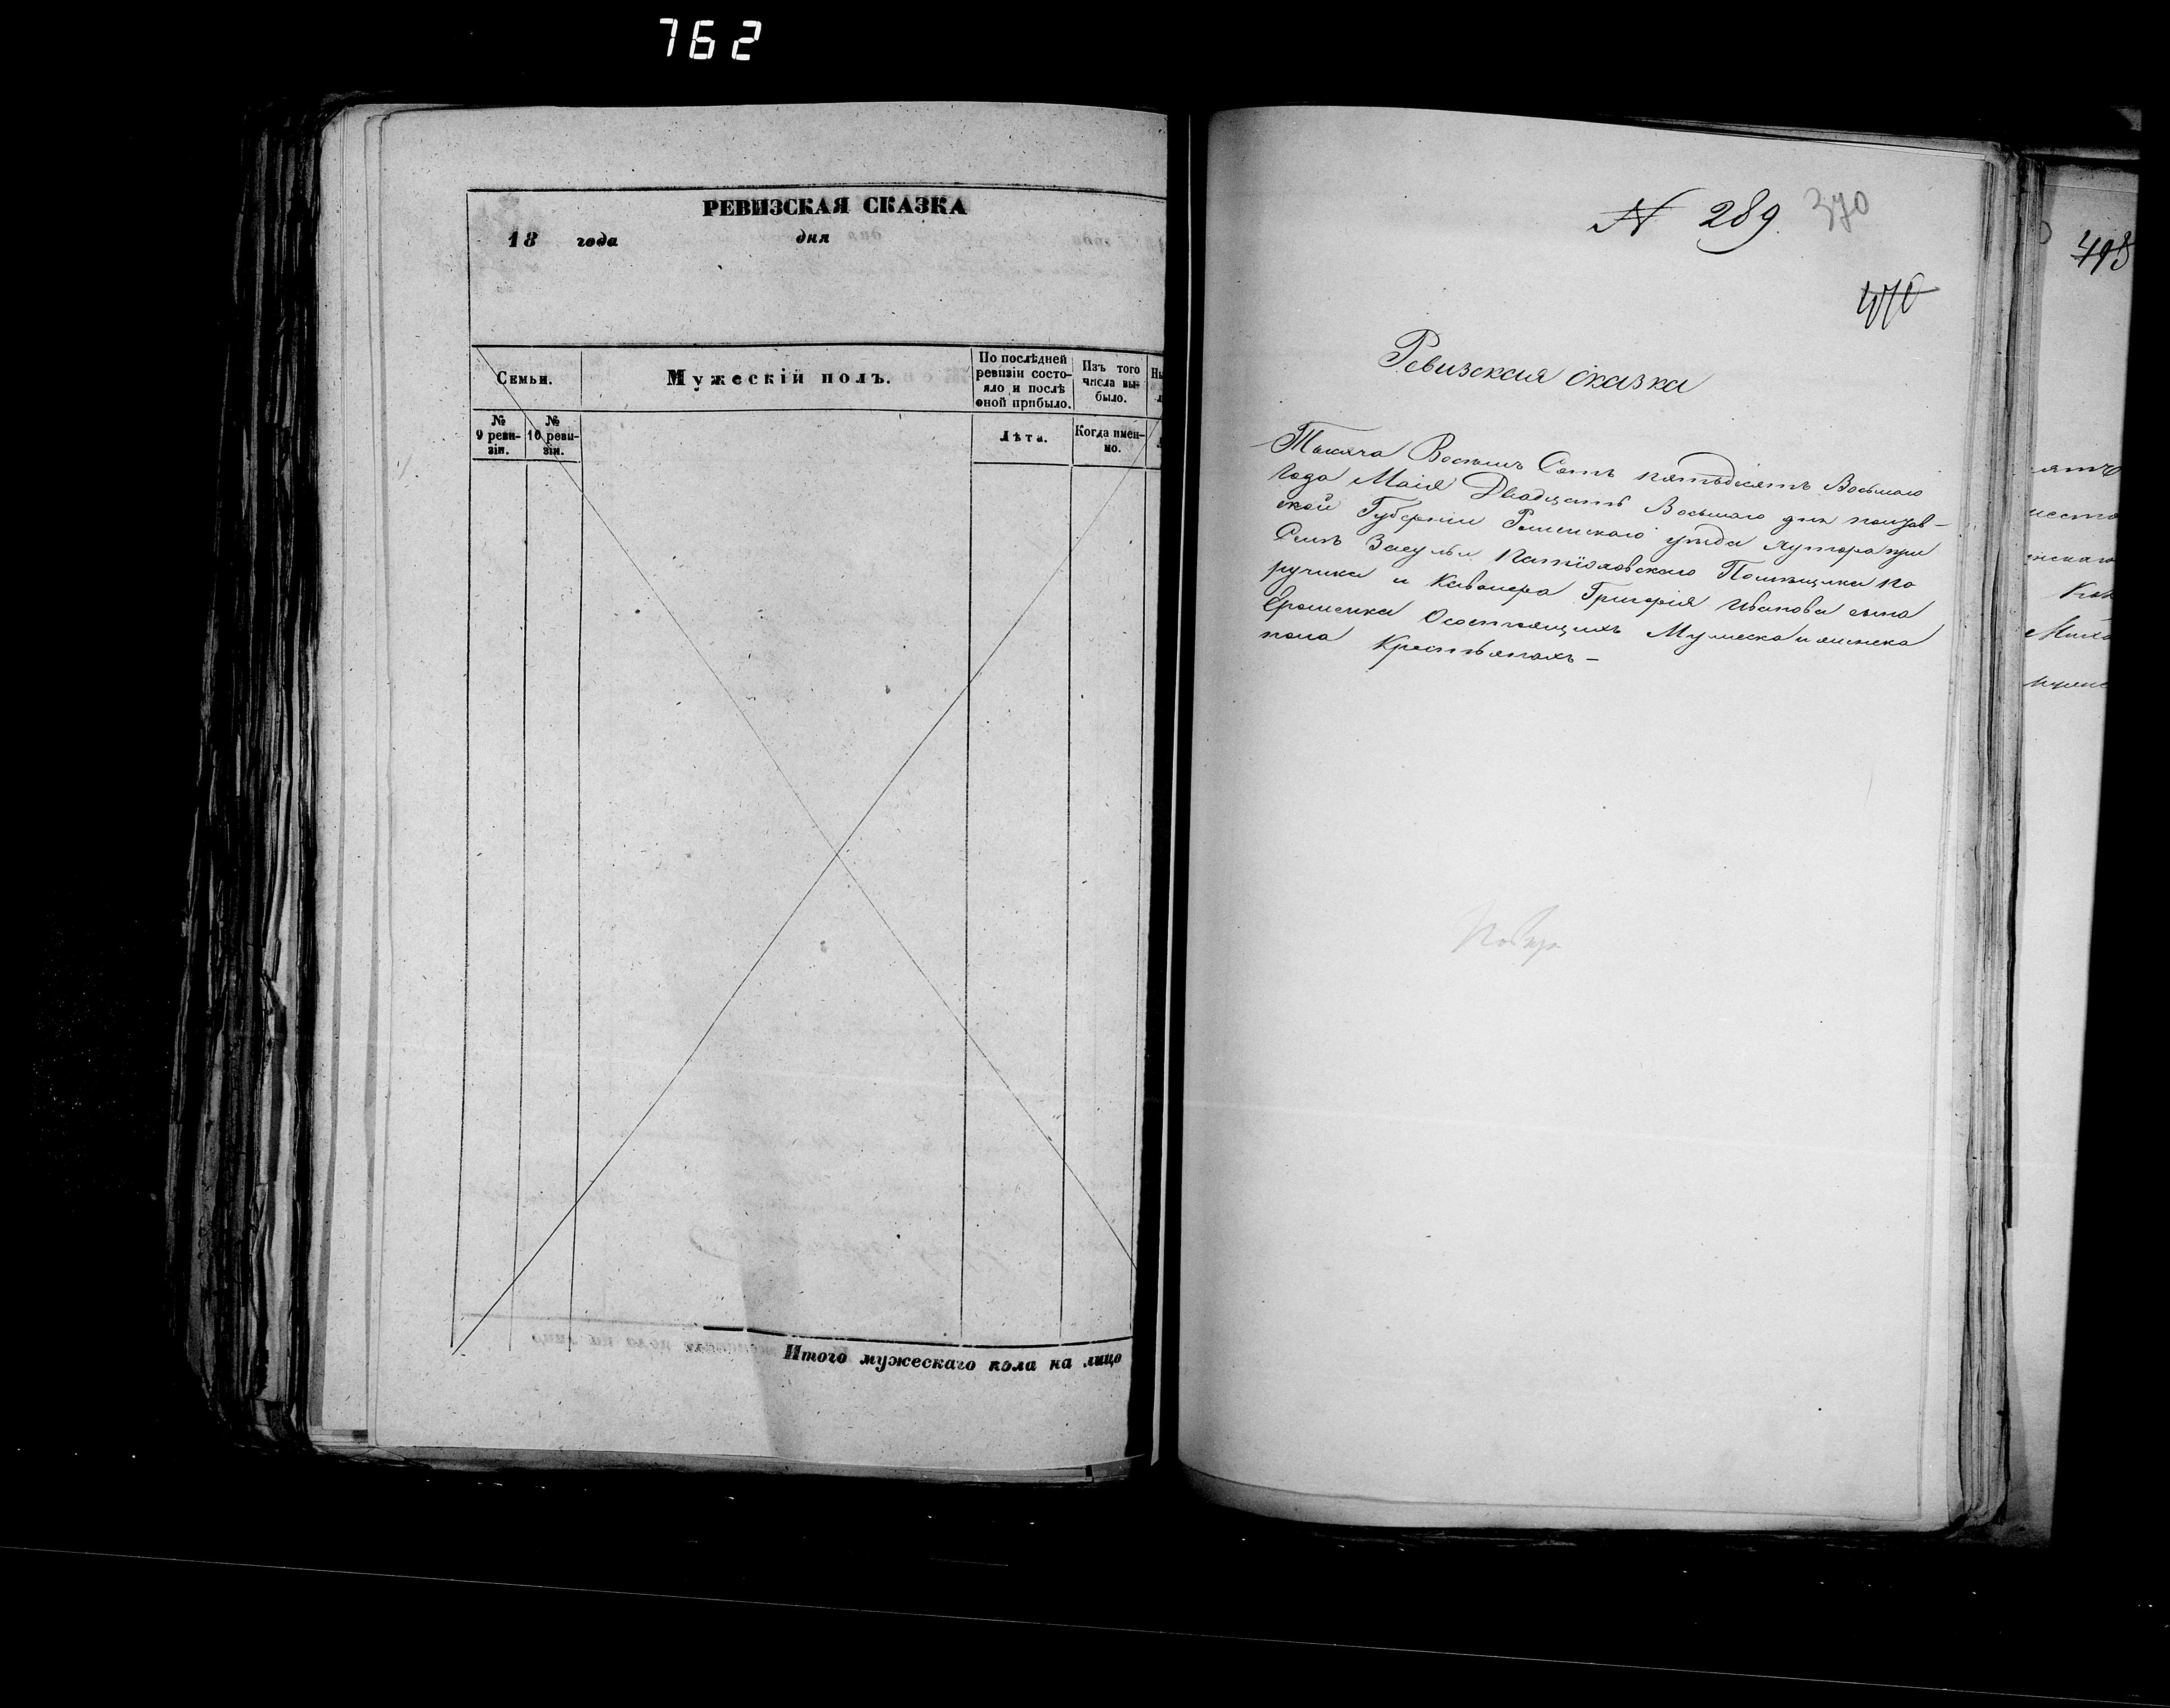 762
РЕВИЗСКАЯ СКАЗКА
18 года дня
Семьи.
Мужескій полъ.
По послѣдней
ревизіи состо-
яло и послѣ
оной прибыло.
Изъ того
числа вы-
было.
№
9 реви-
зіи.
№
10 реви-
зіи.
Лѣта.
Когда имен-
но.
Итого мужескаго пола на лицо
N 289. 370
Ревизская сказка
Тысяча Восемь Сотъ пятьдесятъ Восьмого
года Маія Двадцать Восьмаго дня полтав-
ской Губерніи Роменскаго уезда хутора при
Селѣ Засульи Помѣщика По
ручика и Кавалера Григорія Иванова сына
Ярошенка Осостоящихъ Мужеска и женска
пола Крестьянахъ —
493